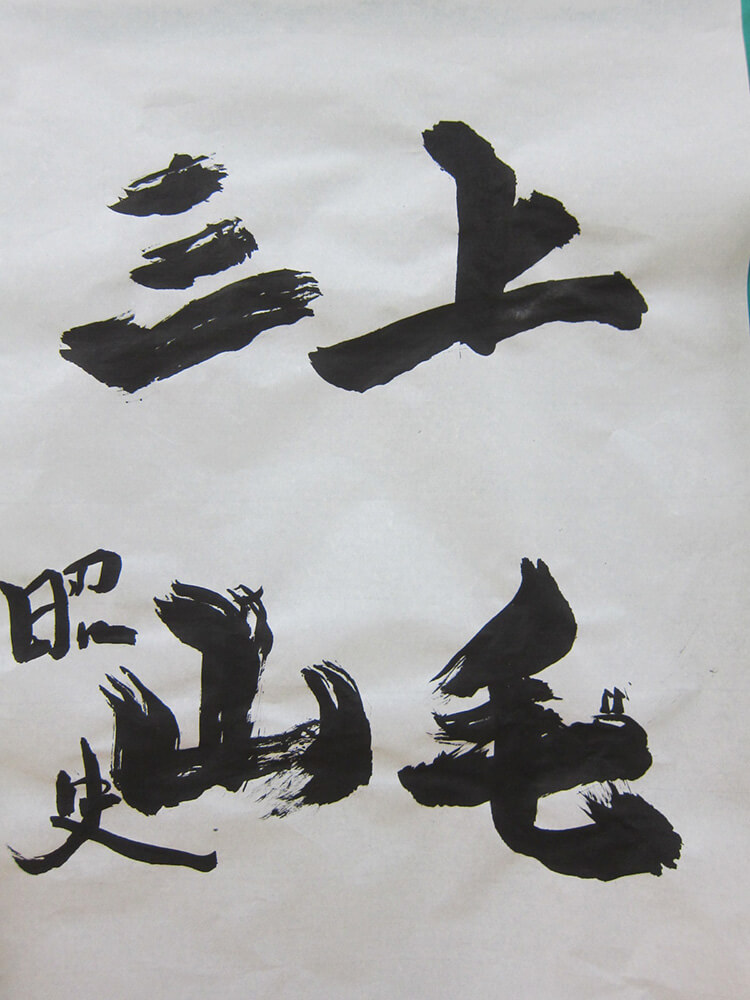 上毛
三山
昭史